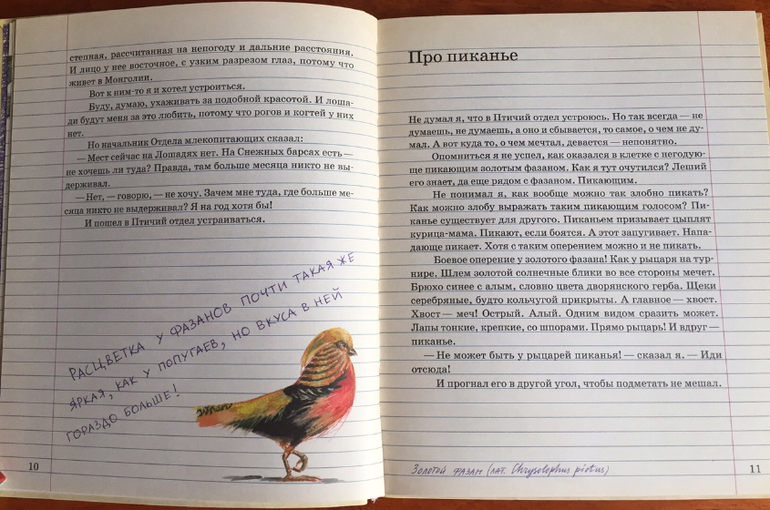 степная, рассчитанная на непогоду и дальние расстояния.
И лицо у нее восточное, с узким разрезом глаз, потому что
живет в Монголии.
Вот к ним-то я и хотел устроиться.
Буду, думаю, ухаживать за подобной красотой. И лоша-
ди будут меня за это любить, потому что рогов и когтей у них
нет.
Но начальник Отдела млекопитающих сказал:
— Мест сейчас на Лошадях нет. На Снежных барсах есть —
не хочешь ли туда? Правда, там больше месяца никто не вы-
держивал.
— Нет, — говорю, — не хочу. Зачем мне туда, где больше ме-
сяца никто не выдерживал? Я на год хотя бы!
И пошел в Птичий отдел устраиваться.
РАСЦВЕТКА У ФАЗАНОВ ПОЧТИ ТАКАЯ ЖЕ
ЯРКАЯ, КАК У ПОПУГАЕВ, НО ВКУСА В НЕЙ
ГОРАЗДО БОЛЬШЕ!
10
Про пиканье
Не думал я, что в Птичий отдел устроюсь. Но так всегда — не
думаешь, не думаешь, а оно и сбывается, то самое, о чем не ду-
мал. А вот куда то, о чем мечтал, девается — непонятно.
Опомниться я не успел, как оказался в клетке с негодую-
ще пикающим золотым фазаном. Как я тут очутился? Леший
его знает, да еще рядом с фазаном. Пикающим.
Не понимал я, как вообще можно так злобно пикать?
Как можно злобу выражать таким пикающим голосом? Пи-
канье существует для другого. Пиканьем призывает цыплят
курица-мама. Пикают, если боятся. А этот запугивает. Напа-
дающе пикает. Хотя с таким оперением можно и не пикать.
Боевое оперение у золотого фазана! Как у рыцаря на тур-
нире. Шлем золотой солнечные блики во все стороны мечет.
Брюхо синее с алым, словно цвета дворянского герба. Щеки
серебряные, будто кольчугой прикрыты. А главное — хвост.
Хвост — меч! Острый. Алый. Одним видом сразить может.
Лапы тонкие, крепкие, со шпорами. Прямо рыцарь! И вдруг —
пиканье.
— Не может быть у рыцарей пиканья! — сказал я. — Иди
отсюда!
И прогнал его в другой угол, чтобы подметать не мешал.
Золотой фазан (лат. Chrysolophus pictus)
11